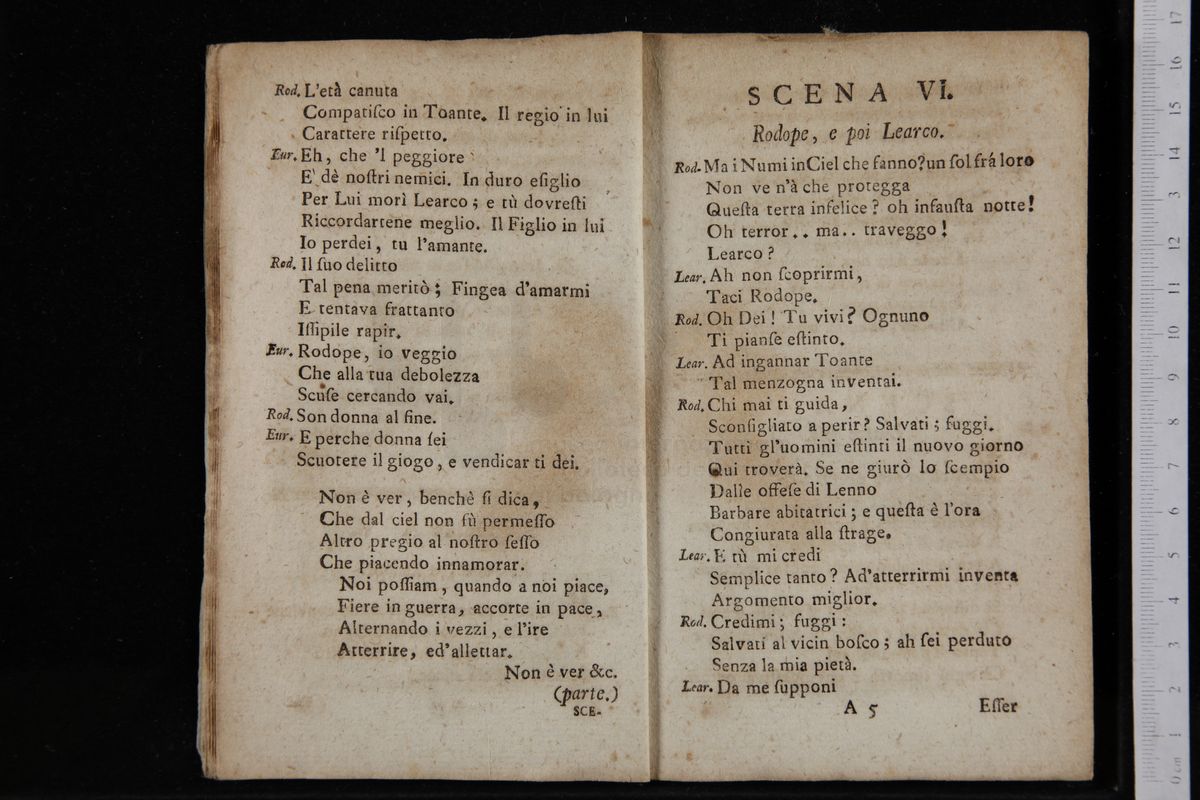 Rod. L'età canuta
Compatiſco in Toante. Il regio in lui
Carattere riſpetto.
Eur. Eh, che 'l peggiore
E' dè noſtri nemici. In duro eſiglio
Per Lui morì Learco; e tù dovreſti
Riccordartene meglio. Il Figlio in lui
Io perdei, tu l'amante.
Rod. Il ſuo delitto
Tal pena meritò; Fingea d'amarmi
E tentava frattanto
Iſſipile rapir.
Eur. Rodope, io veggio
Che alla tua debolezza
Scuſe cercando vai.
Rod. Son donna al fine.
Eur. E perche donna ſei
Scuotere il giogo, e vendicar ti dei.
Non è ver, benchè ſi dica,
Che dal ciel non fù permeſſo
Altro pregio al noſtro ſeſſo
Che piacendo innamorar.
Noi poſſiam, quando a noi piace,
Fiere in guerra, accorte in pace,
Alternando i vezzi, e l'ire
Atterrire, ed'allettar.
Non è ver &c.
(parte.)
SCE-
SCENA VI.
Rodope, e poi Learco.
Rod. Ma i Numi inCiel che fanno? un ſol frá loro
Non ve n'à che protegga
Queſta terra infelice? oh infauſta notte!
Oh terror.. ma.. traveggo!
Learco?
Lear. Ah non ſcoprirmi,
Taci Rodope.
Rod. Oh Dei! Tu vivi? Ognuno
Ti pianſe eſtinto.
Lear. Ad ingannar Toante
Tal menzogna inventai.
Rod. Chi mai ti guida,
Sconſigliato a perir? Salvati; fuggi.
Tutti gl'uomini eſtinti il nuovo giorno
Qui troverà. Se ne giurò lo ſcempio
Dalle offeſe di Lenno
Barbare abitatrici; e queſta è l'ora
Congiurata alla ſtrage.
Lear. E tù mi credi
Semplice tanto? Ad'atterrirmi inventa
Argomento miglior.
Rod. Credimi; fuggi:
Salvati al vicin boſco; ah ſei perduto
Senza la mia pietà.
Lear. Da me ſupponi
A 5 Eſſer
17
16
15
14
13
12
11
10
9
8
7
6
5
4
3
2
1
0 cm